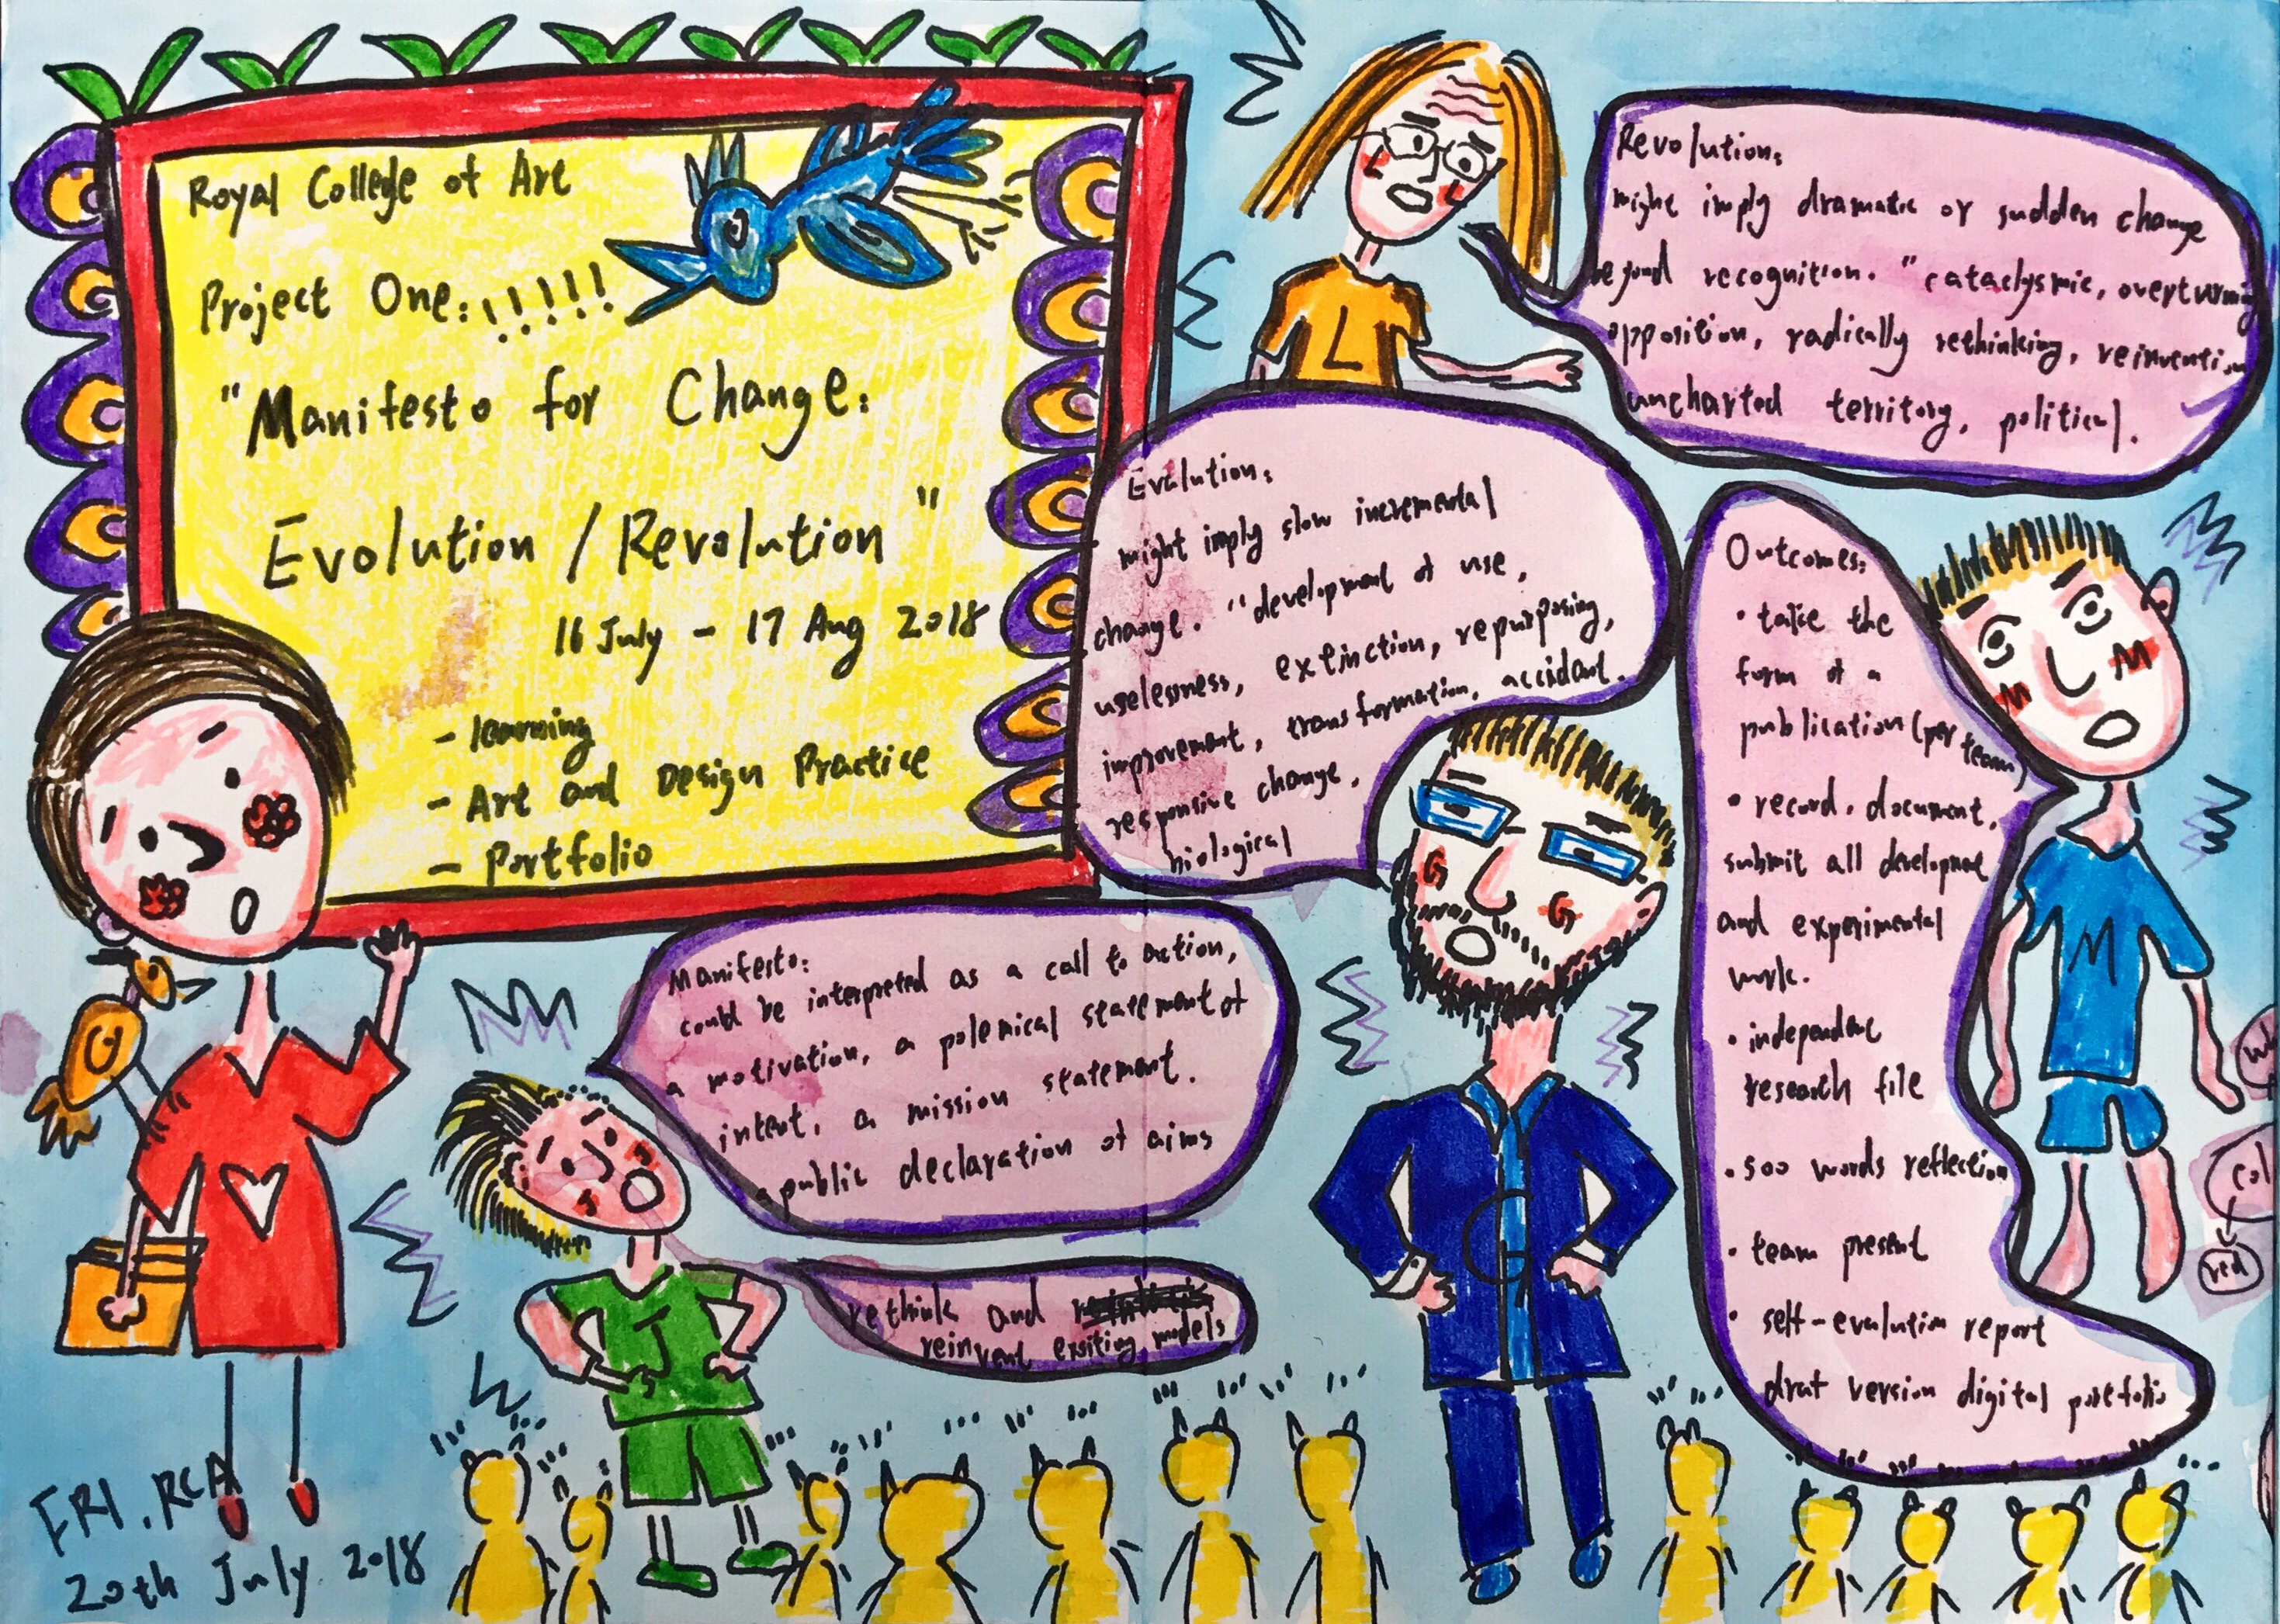 Royal College of Art
Project One: !!!!!
"Manifesto for Change:
Evolution / Revolution"
16 July - 17 Aug 2018
- learning
- Art and Design Practice
- Portfolio
Revolution:
might imply dramatic or sudden change
beyond recognition. "cataclysmic, overturning
opposition, radically rethinking, reinvention
uncharted territory, political.
L
Evolution:
might imply slow incremental
change. "development of use,
uselessness, extinction, repurposing,
improvement, transformation, accident.
responsive change,
biological
Outcomes:
• take the
form of a
publication (per team)
• record, document,
submit all development
and experimental
work.
• independent
research file
• 500 words reflection
• team present
• self-evalution report
drat version digital portfolio
M
M
M
G
G
G
Manifesto:
could be interpreted as a call to action,
a motivation, a polemical statement of
intent, a mission statement.
a public declaration of aims
rethink and
reinvent exsiting models
J
wh
col
red
FRI. RCA
20th July 2018